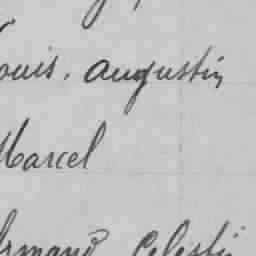 Louis. Augustin
Marcel
Armand Célestin